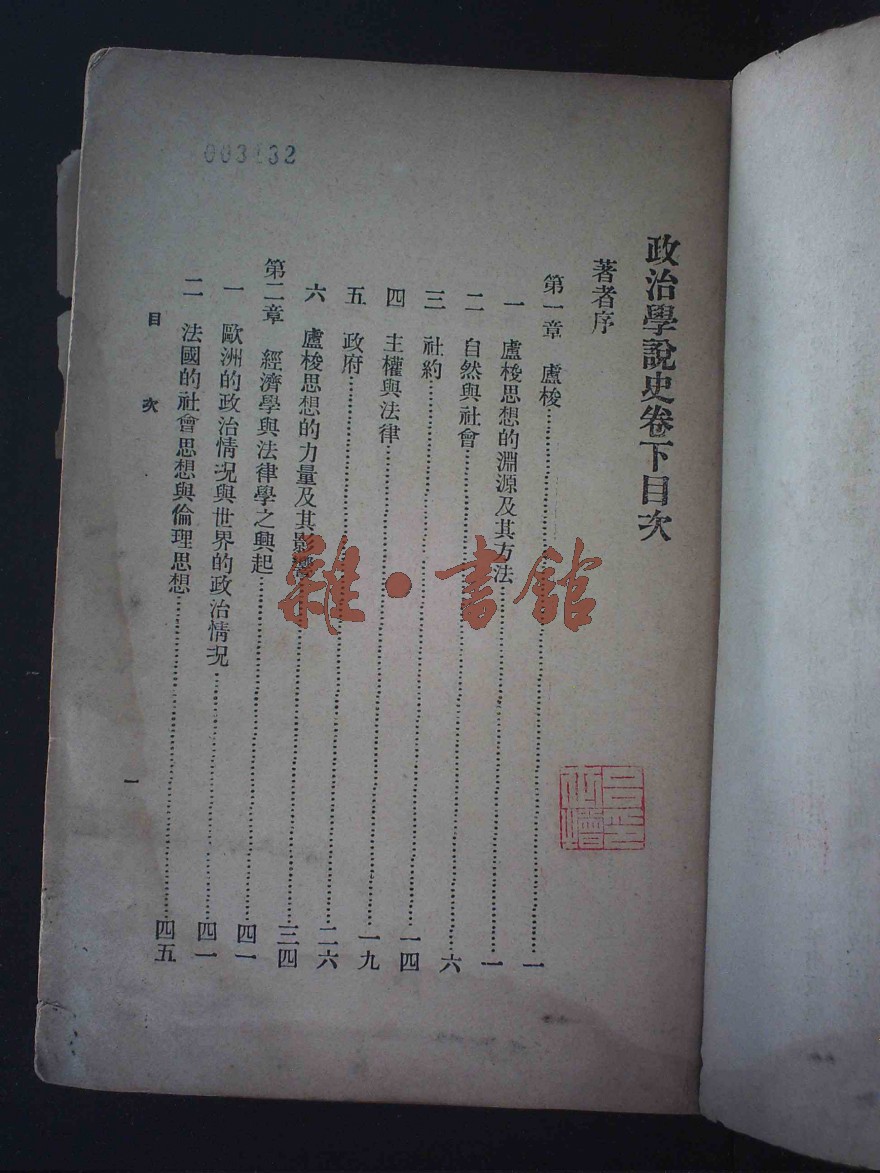 政治學說史卷下目次
著者序
第一章 盧梭……一
一 盧梭思想的淵源及其方法……一
二 自然與社會……六
三 社約……一四
四 主權與法律……一九
五 政府……二六
六 盧梭思想的力量及其影響……三四
第二章 經濟學與法律學之興起……四一
一 歐洲的政治情況與世界的政治情況……四一
二 法國的社會思想與倫理思想……四五
目次
一
003132
雜·書館